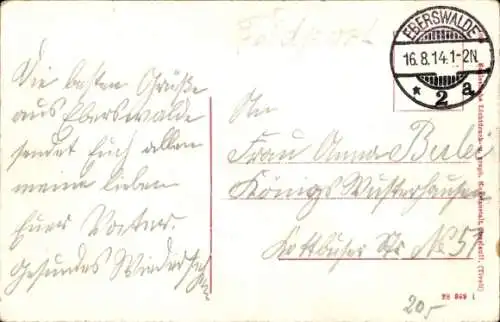 Feldpost
EBERSWALDE
16.8.14.1-2N.
* 2 a
Die besten Grüße
aus Eberswalde
sendet Euch allen
meine lieben
Euer Vater.
Gesundes Wiedersehn
An
Frau Anna
Königs Wusterhausen
Kottbuser Str No 57
Lichtdruck- u.
(Tivoli)
1
20,-